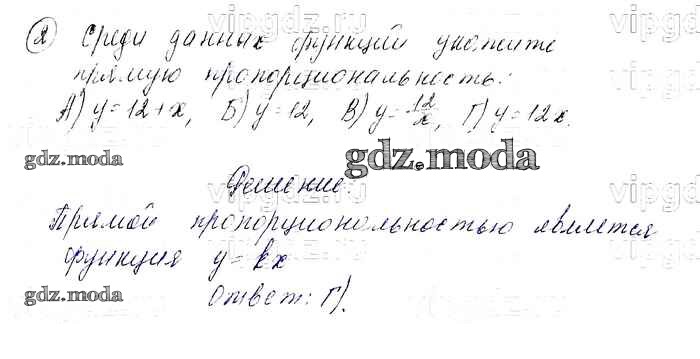 2 Среди данных функций укажите
прямую пропорциональность:
А) y=12+x, Б) y=12, В) y=12/x, Г) y=12x.
gdz.moda
gdz.moda
Решение:
Прямой пропорциональностью является
функция y=kx
gdz.moda
Ответ: Г).